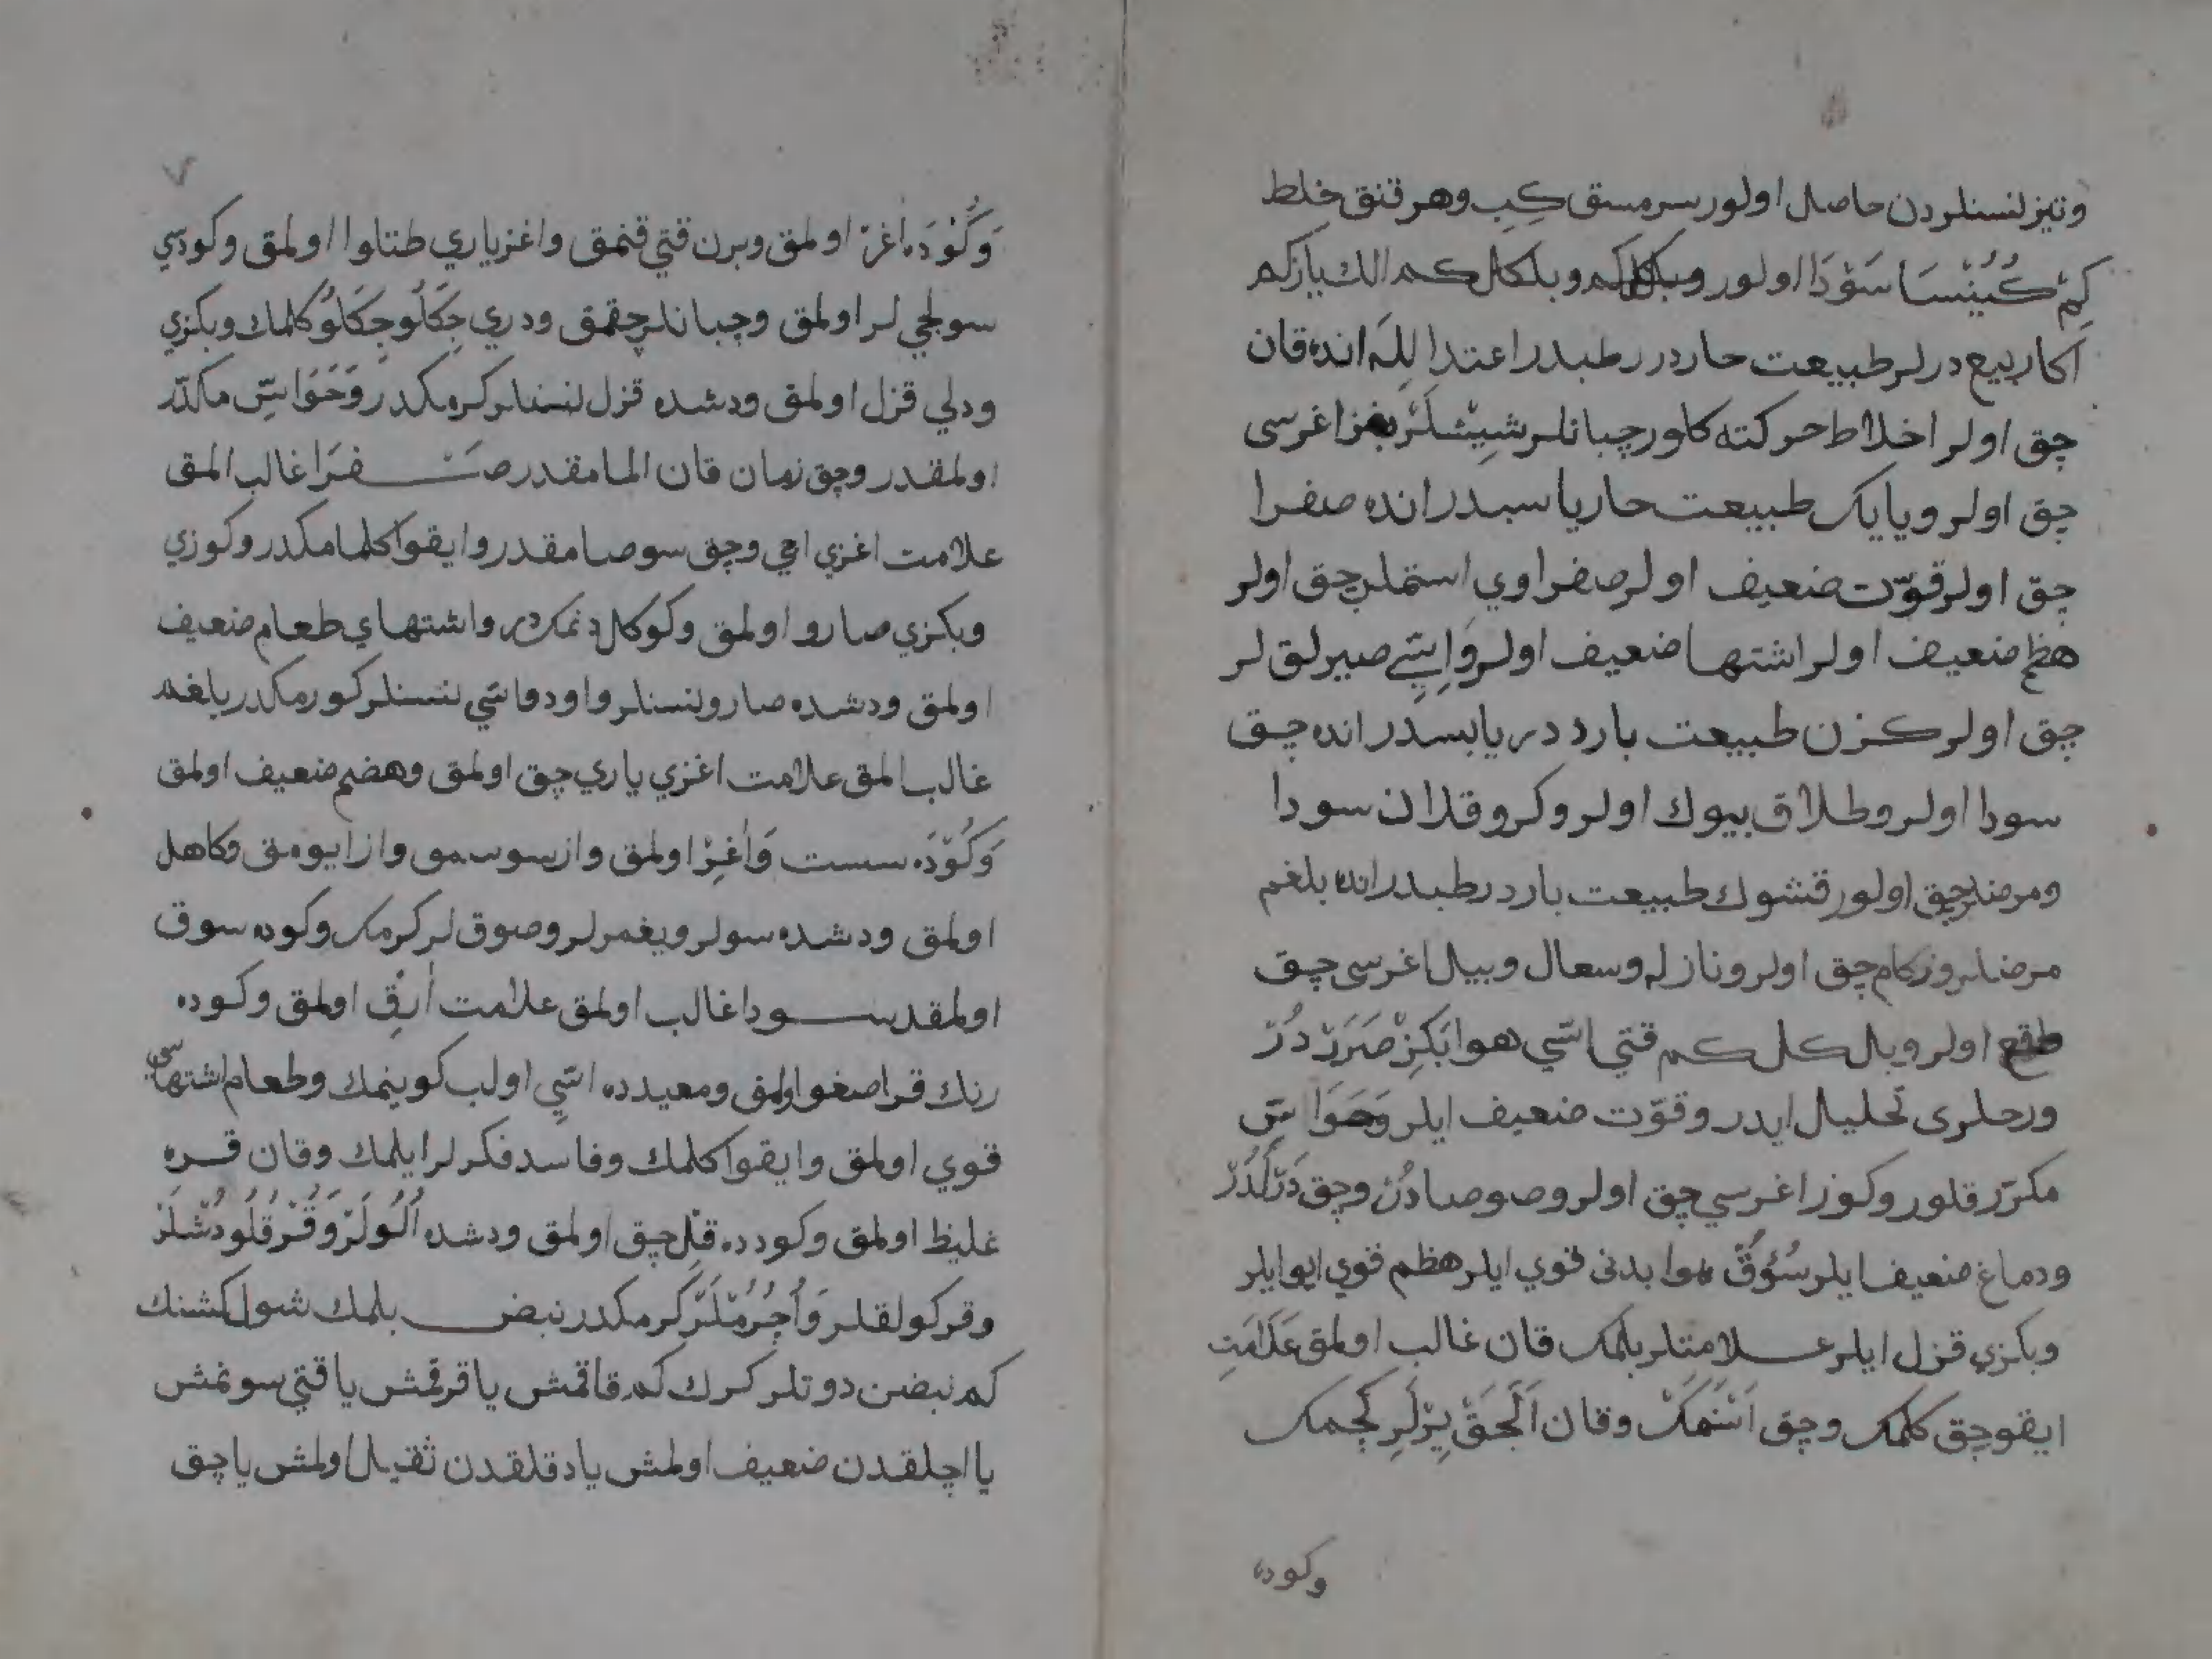 وتيز نسنلردن حاصل اولور سرمسق كِبِ وهر قنق خلط
كِمْ كُيُنْسَا سَوْدَا اولور وبلكل كم الك يازكم
اكا ربيع درلر طبيعت حاردر رطبدر اعتدا لِلَه انده قان
چق اولر اخلاط حركته كلور چبانلر شِيْشلَرْ بغز اغرسى
چق اولر ويايك طبيعت حار ياسبدر انده صفرا
چق اولر قوّت ضعيف اولر صفراوي استملر چق اولر
هظم ضعيف اولر اشتها ضعيف اولر وَاِسّي صيرلق لر
چق اولر كزن طبيعت بارد در يابسدر انده چق
سودا اولر وطلاق بيوك اولر وكرو قلان سودا
ومرضلر چق اولور قشوك طبيعت بارد رطبدر انده بلغم
مرضلر وزكام چق اولر ونازله وسعال وبيل اغرسى چق
اولر وبل كل كم قتي اسّي هوا بَكِزْ صَرَرْدُرْ
ورحلرى تحليل ايدر وقوّت ضعيف ايلر وَحَوَا سِّ
مكرّر قلور وكوز اغرسي چق اولر وصوصادُرْ وچق دَرْلَدُرْ
ودماغ ضعيف ايلر سُوُقْ هوا بدنى قوي ايلر هظم قوي ايو ايلر
وبكزي قزل ايلر علامتلر بلمك قان غالب اولمق عَلَامَتِ
ايقو چق كلمك وچق اَسْنَمَكْ وقان اَلَجَقْ يِرْلَرِ كَجِمك
وكوده
٧
وَكَُوْدَه اغرْ اولمق وبرن قتي قنمق واغز ياري طتلوا اولمق وكودسي
سولجي لر اولمق وچبانلر چقمق ودري جِكَلُو جِكَلُو كلمك وبكزي
ودلي قزل اولمق ودشده قزل نسنلر كرمكدر وَحَوَاسِّ مكدّر
اولمقدر وچق زمان قان المامقدر صَفرَا غالب المق
علامت اغزي اجي وچق سوصامقدر وايقوا كلمامكدر وكوزي
وبكزي صارو اولمق وكوكل دنمك در واشتهاي طعام ضعيف
اولمق ودشده صارو نسنلر واود واسّي نسنلر كورمكدر بلغم
غالب المق علامت اغزي ياري چق اولمق وهضم ضعيف اولمق
وَكَوْدَه سست وَاَغِرْ اولمق واز سوسمق واز ايومق وكاهل
اولمق ودشده سولر ويغمرلر وصوق لر كرمك وكوده سوق
اولمقدر سودا غالب اولمق علامت اَرِقْ اولمق وكوده
رنك قرا صغو اولمق ومعيدده اسّي اولب كوينمك وطعام اشتهاسي
قوي اولمق وايقوا كلمك وفاسد فكر لر ايلمك وقان قره
غليظ اولمق وكودده قِل چق اولمق ودشده اُلُولَرْ وَقُرْقُلُو دُشْلَرْ
وقركولقلر وَاُجُرُمْلَرْ كرمكدر نبض بلمك شول كشنك
كم نبضن دوتلر كرك كم قاقمش يا قرقمش يا قتي سونمش
يا اچلقدن ضعيف اولمش ياد قلقدن ثقيل اولمش يا چق